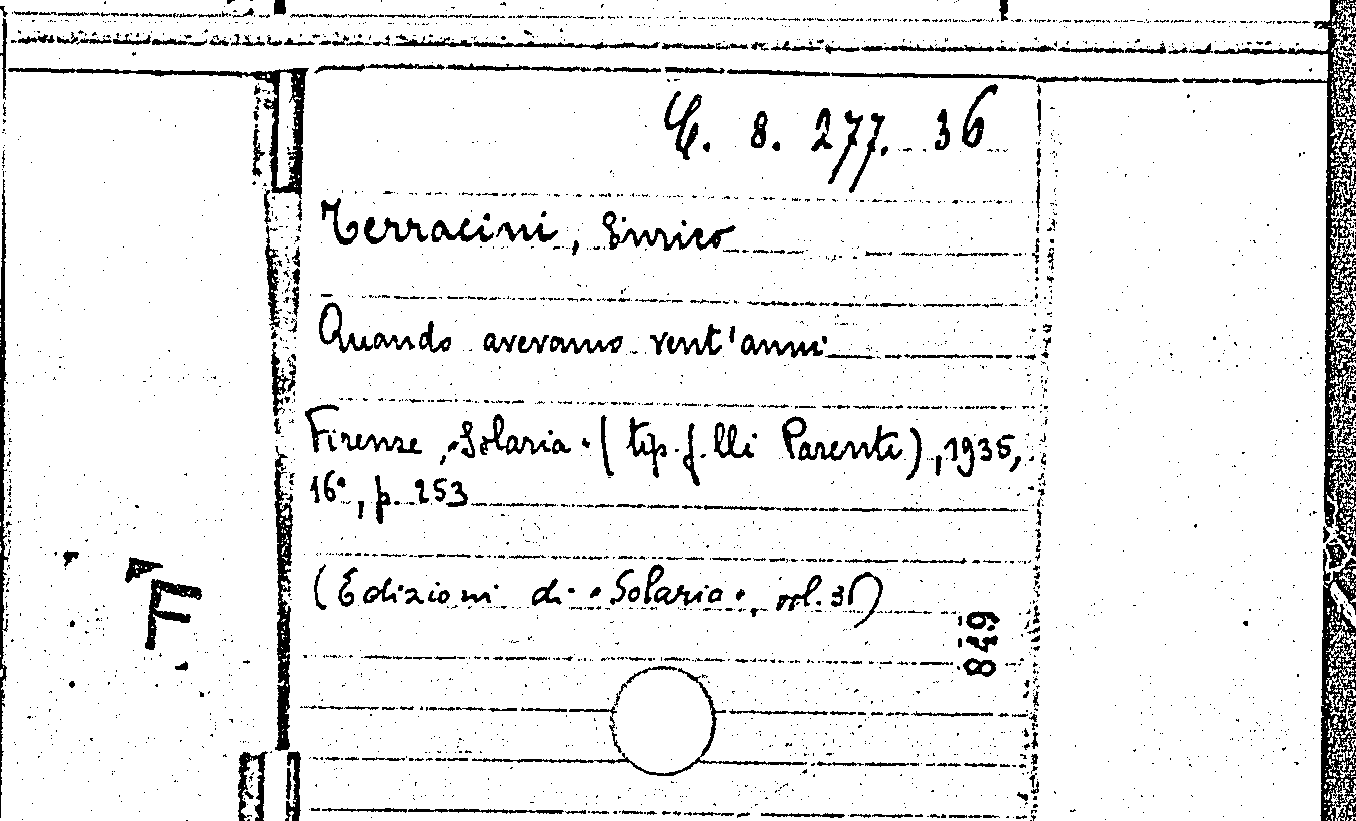 C. 8. 277. 36
Terracini, Enrico
Quando avevamo vent'anni
Firenze, «Solaria» (tip. f.lli Parenti), 1935,
16°, p. 253
(Edizioni di «Solaria», vol.)
849
F